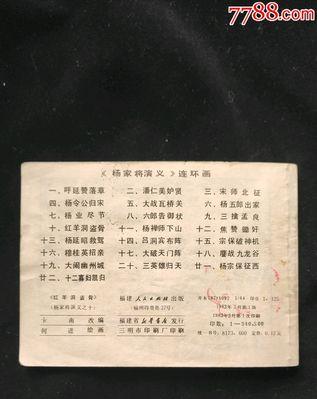 7788.com
《杨家将演义》连环画
一、呼延赞落草 二、潘仁美妒贤 三、宋师北征
四、杨令公归宋 五、大战瓦桥关 六、杨五郎出家
七、杨业尽节 八、六郎告御状 九、三擒孟良
十、红羊洞盗骨 十一、杨禅师下山 十二、焦赞锄奸
十三、杨延昭救驾 十四、吕洞宾布阵 十五、宗保破神机
十六、穆桂英招亲 十七、大破天门阵 十八、鏖战九龙谷
十九、大闹幽州城 二十、三英雄归天 廿一、杨宗保征西
廿二、十二寡妇凯归
《红羊洞盗骨》
(杨家将演义之十)
卡南改编
何进绘画
福建人民出版社出版
(福州得贵巷27号)
福建省新华书店发行
三明市印刷厂印刷
开本787×1092 1/64 印张 1.125
1982年2月第1版
1982年2月第1次印刷
印数:1—540,500
统一书号:8173.600 定价:0.12元